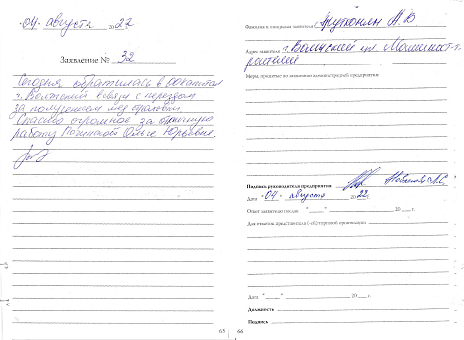 "04" августа 2022
Заявление № 32
Сегодня обратилась в
г. Волжский в связи с переездом
за получением мед страховки.
Спасибо огромное за отличную
работу Ольге Юрьевне.
65
Фамилия и инициалы заявителя
Адрес заявителя г. Волжский ул Машиност-
роителей
Меры, принятые по заявлению администрацией предприятия:
Подпись руководителя предприятия
Дата "04" августа 2022 г.
Ответ заявителю послан " " 20 г.
Для отметок представителя (-ей) торговой организации
Дата " " 20 г.
Должность
Подпись
66